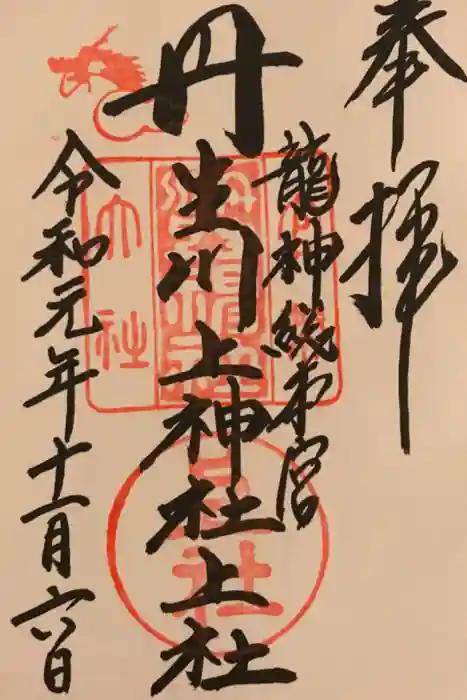 奉拝
龍神総本宮
丹生川上神社上社
令和元年十一月六日
大社